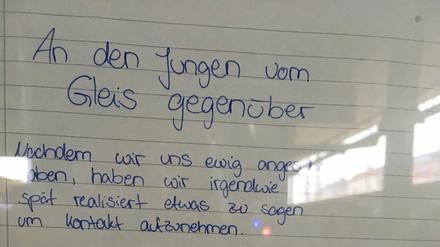 An den Jungen vom
Gleis gegenüber
Nachdem wir uns ewig
haben, haben wir irgendwie
spät realisiert etwas zu sagen
um Kontakt aufzunehmen.